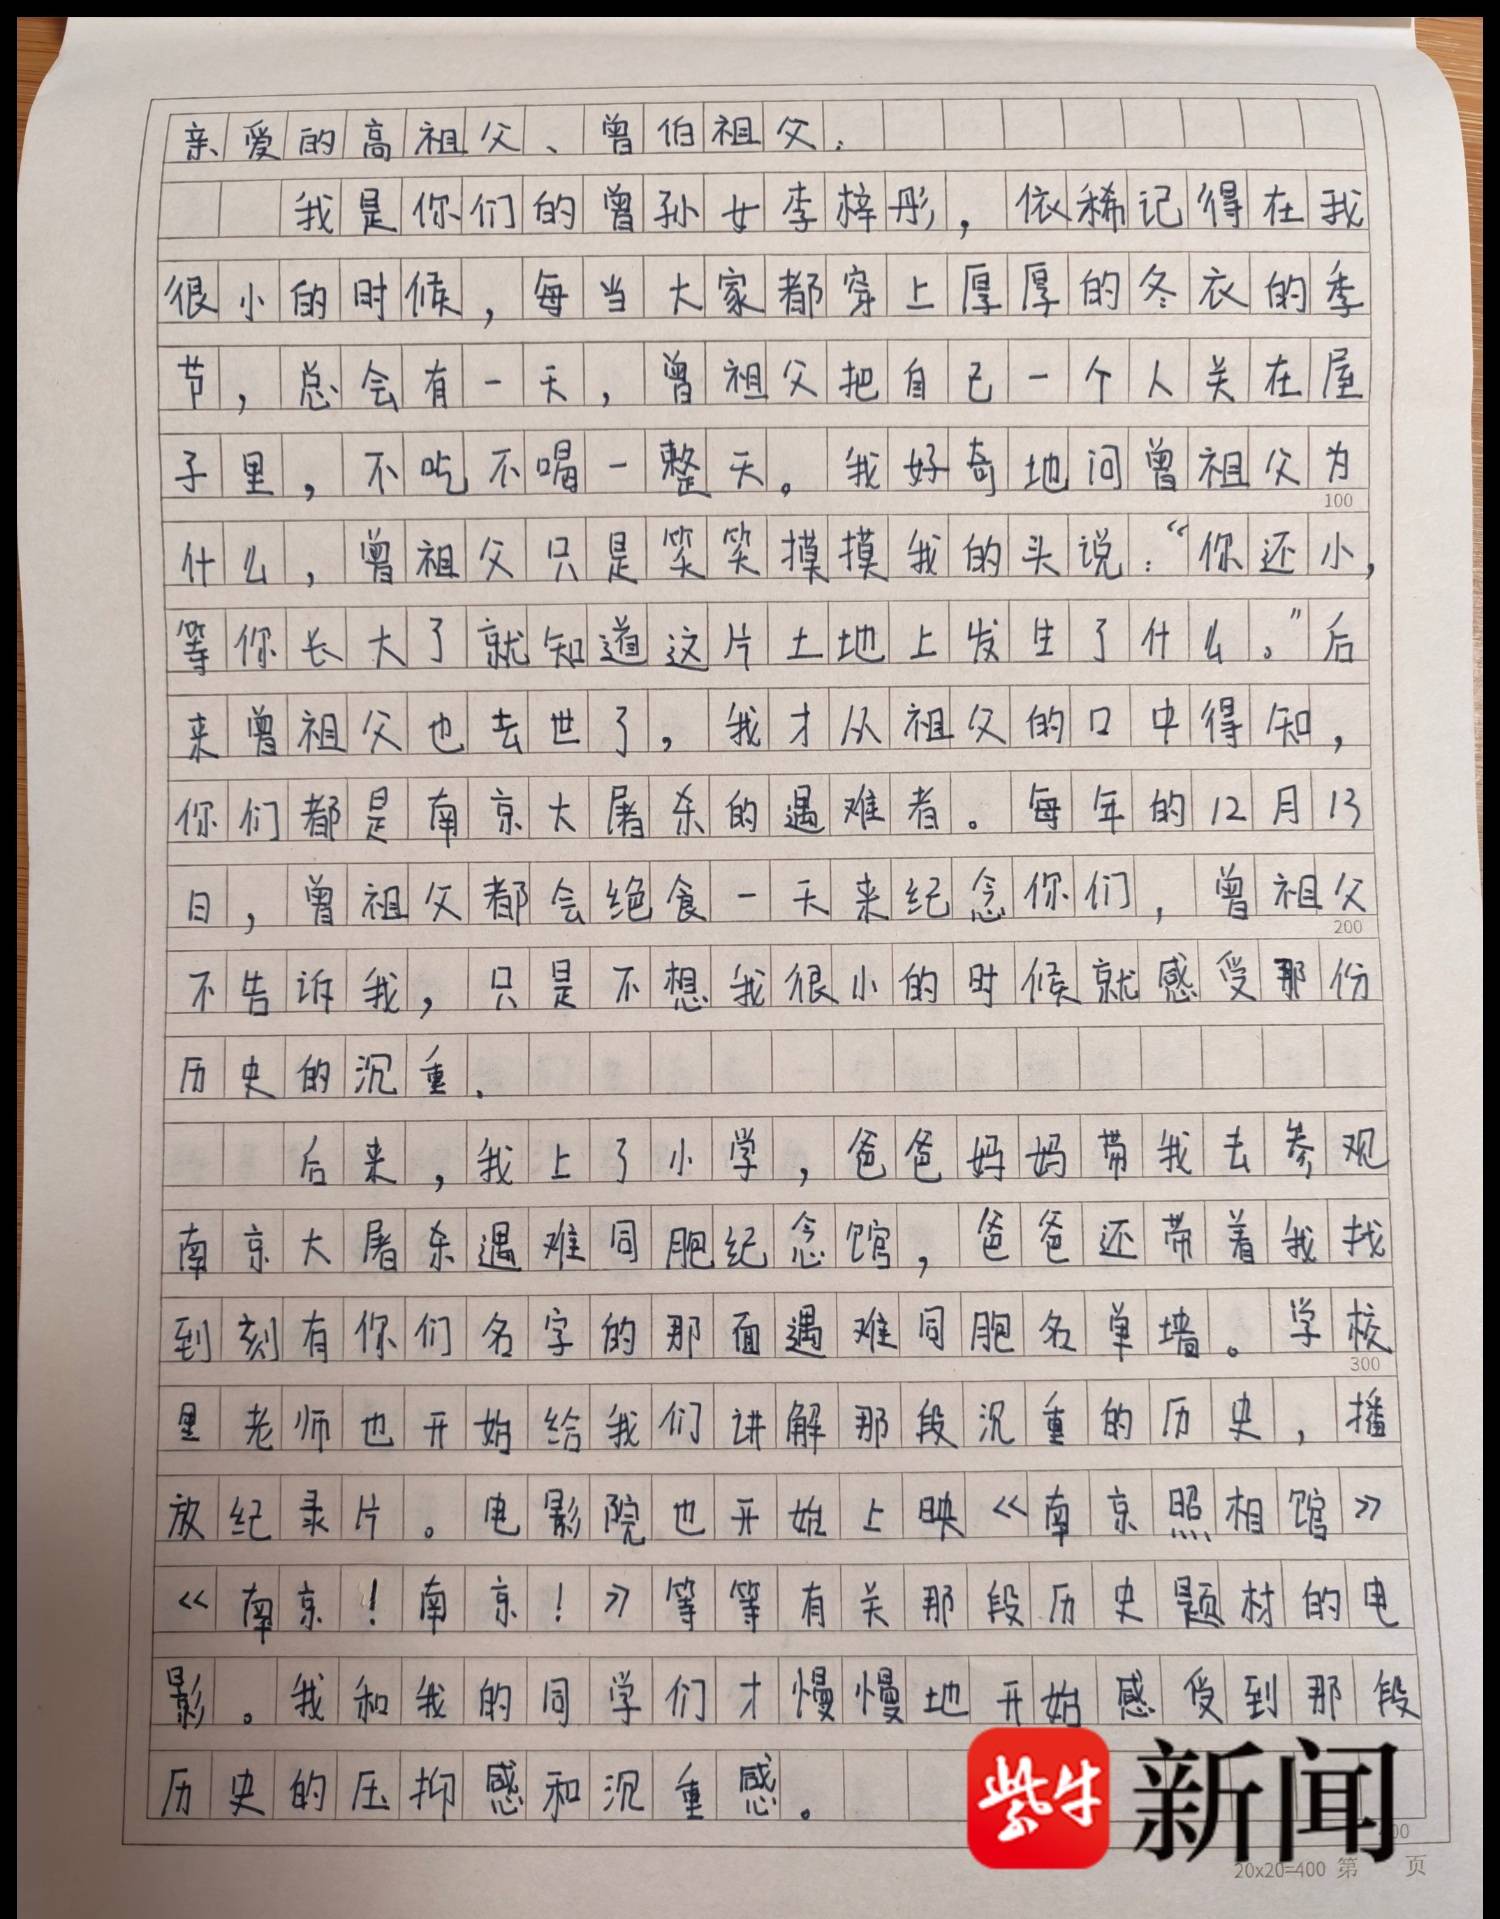 亲爱的高祖父、曾伯祖父：
我是你们的曾孙女李梓彤，依稀记得在我
很小的时候，每当大家都穿上厚厚的冬衣的季
节，总会有一天，曾祖父把自己一个人关在屋
子里，不吃不喝一整天。我好奇地问曾祖父为
100
什么，曾祖父只是笑笑摸摸我的头说：“你还小，
等你长大了就知道这片土地上发生了什么。”后
来曾祖父也去世了，我才从祖父的口中得知，
你们都是南京大屠杀的遇难者。每年的12月13
日，曾祖父都会绝食一天来纪念你们，曾祖父
200
不告诉我，只是不想我很小的时候就感受那份
历史的沉重．
后来，我上了小学，爸爸妈妈带我去参观
南京大屠杀遇难同胞纪念馆，爸爸还带着我找
到刻有你们名字的那面遇难同胞名单墙。学校
300
里老师也开始给我们讲解那段沉重的历史，播
放纪录片。电影院也开始上映《南京照相馆》
《南京！南京！》等等有关那段历史题材的电
影。我和我的同学们才慢慢地开始感受到那段
历史的压抑感和沉重感。
紫牛新闻
20x20=400 第 页